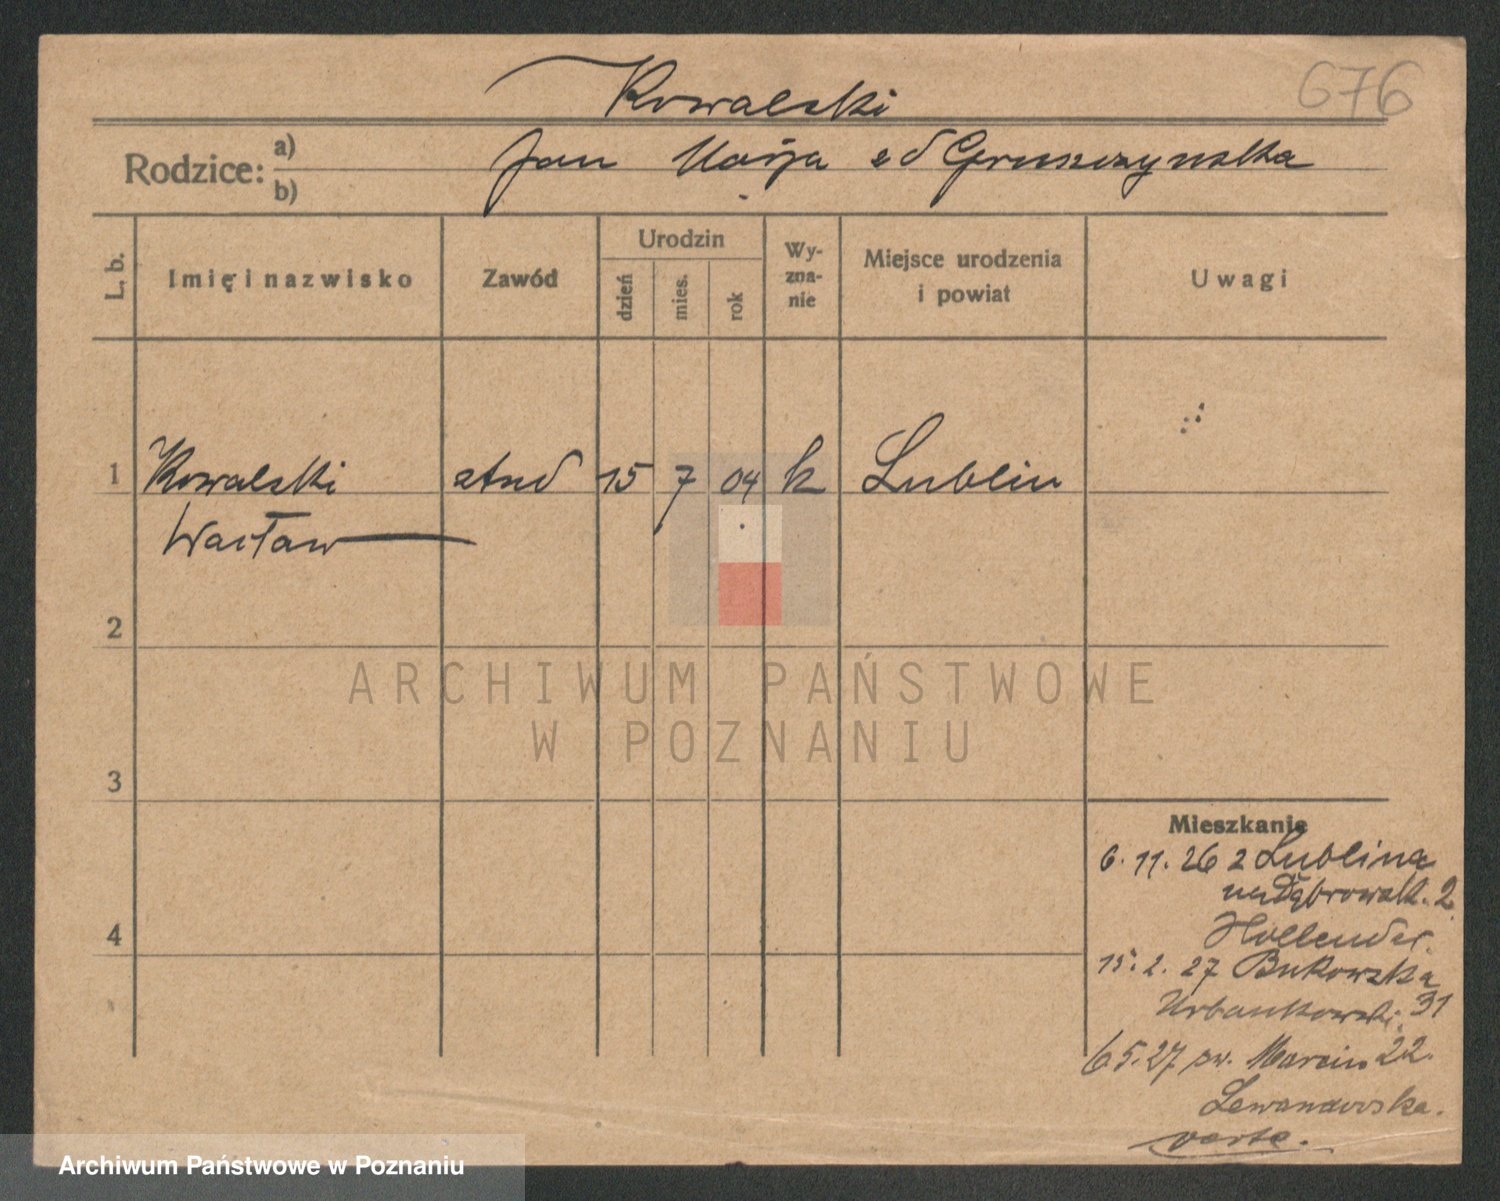 Kowalski
676
Rodzice: a)
b)
Jan Marja z d Gruszczynska
L. b.
Imię i nazwisko
Zawód
Urodzin
dzień
mies.
rok
Wy-
zna-
nie
Miejsce urodzenia
i powiat
Uwagi
1 Kowalski stud 15 7 04 k Lublin
Wacław
2
ARCHIWUM PAŃSTWOWE
W POZNANIU
3
Mieszkanie
6. 11. 26 z Lublina
Dąbrowsk. 2
4
Hollender.
15. 2. 27 Bukowska
Urbankowski. 31
6 5. 27 św. Marcin 22.
Lewandowska.
verte.
Archiwum Państwowe w Poznaniu